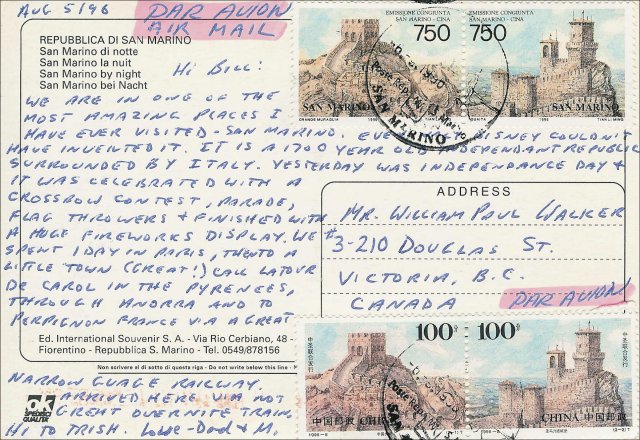 AUG 5/96 PAR AVION
AIR MAIL
REPUBBLICA DI SAN MARINO
San Marino di notte
San Marino la nuit
San Marino by night
San Marino bei Nacht
HI BILL!
WE ARE IN ONE OF THE
MOST AMAZING PLACES I
HAVE EVER VISITED - SAN MARINO. EVEN DISNEY COULDN'T
HAVE INVENTED IT. IT IS A 1700 YEAR OLD INDEPENDANT REPUBLIC
SURROUNDED BY ITALY. YESTERDAY WAS INDEPENDANCE DAY &
IT WAS CELEBRATED WITH A
CROSSBOW CONTEST, PARADE,
FLAG THROWERS & FINISHED WITH
A HUGE FIREWORKS DISPLAY. WE
SPENT 1 DAY IN PARIS, THEN TO A
LITTLE TOWN (GREAT!) CALL LATOUR
DE CAROL IN THE PYRENCES,
THROUGH ANORRA AND TO
PERPIGNON FRANCE VIA A GREAT
Ed. International Souvenir S. A. - Via Rio Cerbiano, 48 -
Fiorentino - Repubblica S. Marino - Tel. 0549/878156
Non scrivere al di sotto di questa riga - Do not write below this line -
NARROW GUAGE RAILWAY.
ARRIVED HERE VIA NOT
GREAT OVERNITE TRAIN.
HI TO TRISH. LOVE - DAD & M.
ok
SPECIALE
QUALITA'
EMISSIONE CONGIUNTA
SAN MARINO - CINA
750
SAN MARINO
GRANDE MURAGLIA 1996 TIAN LI MING
EMISSIONE CONGIUNTA
SAN MARINO - CINA
750
SAN MARINO
1996 TIAN LI MING
SAN MARINO
ADDRESS
MR. WILLIAM PAUL WALKER
#3-210 DOUGLAS ST.
VICTORIA, B.C.
CANADA
PAR AVION
中圣联合发行
100分
中国邮政 CHINA
1996-8
中圣联合发行
100分
CHINA 中国邮政
(2-2)T